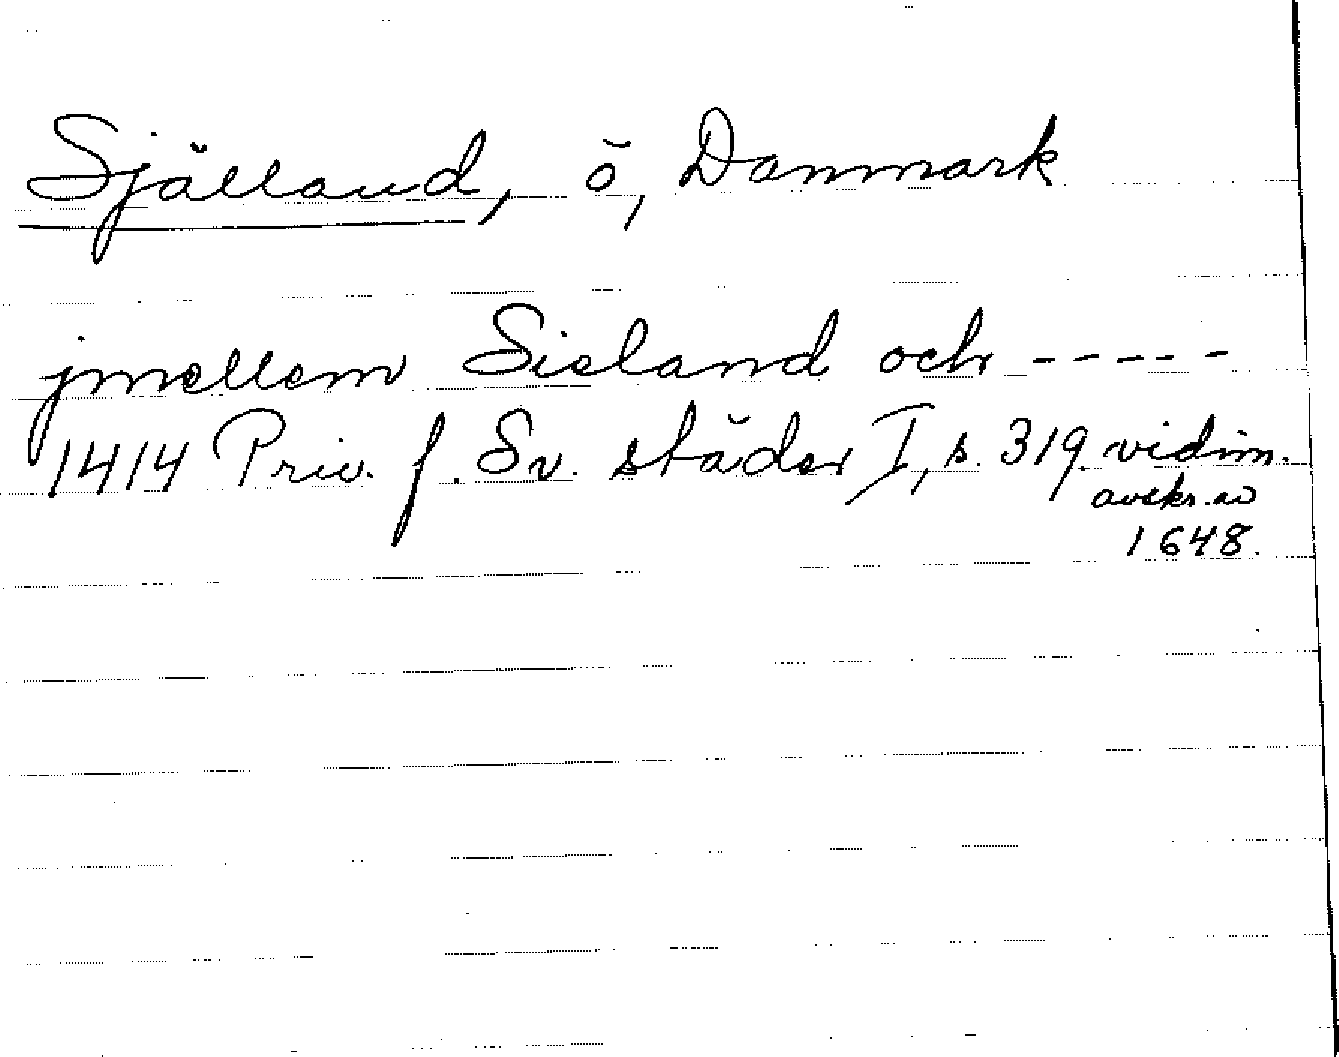 Själland, ö, Danmark
jmellem Sieland och -----
1414 Priv. f. Sv. städer I, s. 319 vidim.
avskr. av
1648.